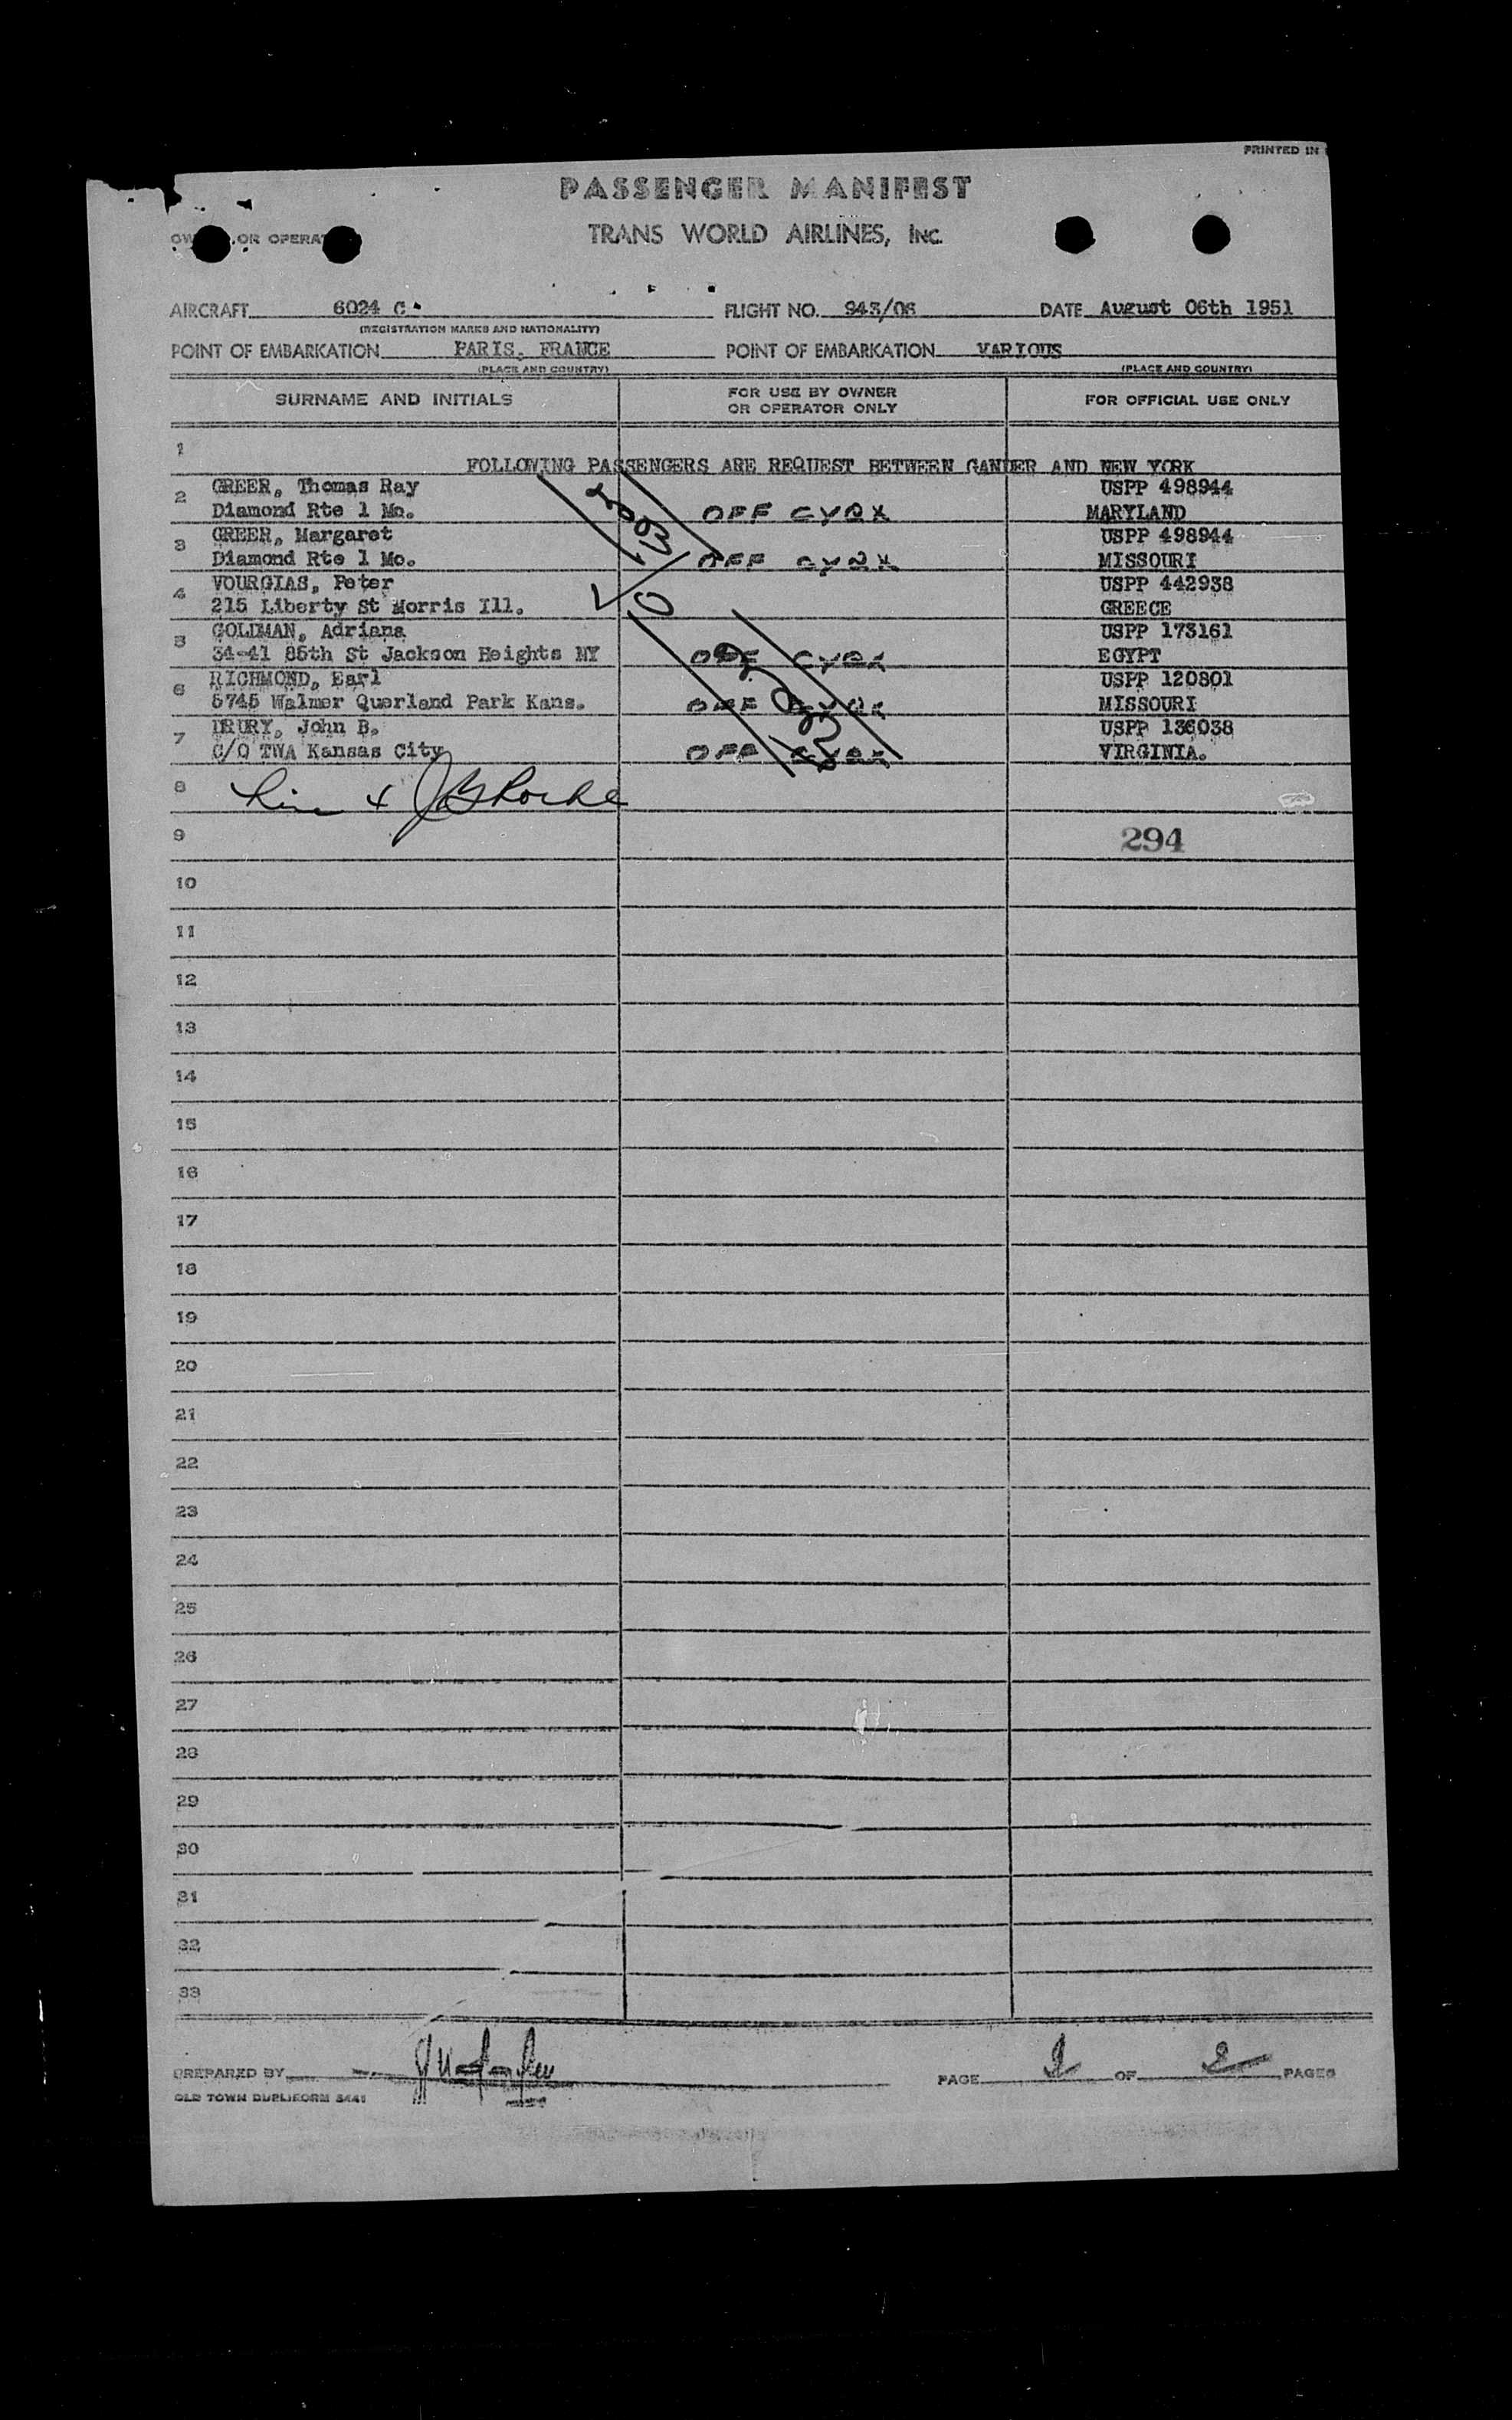 PRINTED IN
PASSENGER MANIFEST
OR OPERAT
TRANS WORLD AIRLINES, INC.
AIRCRAFT 6024 C FLIGHT NO. 943/06 DATE August 06th 1951
(REGISTRATION MARKS AND NATIONALITY)
POINT OF EMBARKATION PARIS, FRANCE POINT OF EMBARKATION VARIOUS
(PLACE AND COUNTRY) (PLACE AND COUNTRY)
SURNAME AND INITIALS FOR USE BY OWNER OR OPERATOR ONLY FOR OFFICIAL USE ONLY
1
FOLLOWING PASSENGERS ARE REQUEST BETWEEN GANDER AND NEW YORK
2 GREER, Thomas Ray USPP 498944
Diamond Rte 1 Mo. OFF CYQX MARYLAND
3 GREER, Margaret USPP 498944
Diamond Rte 1 Mo. OFF CYQX MISSOURI
4 VOURGIAS, Peter USPP 442938
215 Liberty St Morris Ill. GREECE
5 GOLDMAN, Adriana USPP 173161
34-41 85th St Jackson Heights NY OFF CYQX EGYPT
6 RICHMOND, Earl USPP 120801
5745 Walmer Querland Park Kans. OFF CYQX MISSOURI
7 DRURY, John B. USPP 136038
C/O TWA Kansas City OFF CYQX VIRGINIA.
8
9 294
10
11
12
13
14
15
16
17
18
19
20
21
22
23
24
25
26
27
28
29
30
31
32
33
PREPARED BY PAGE 2 OF 2 PAGES
OLD TOWN DUPLIFORM 5441